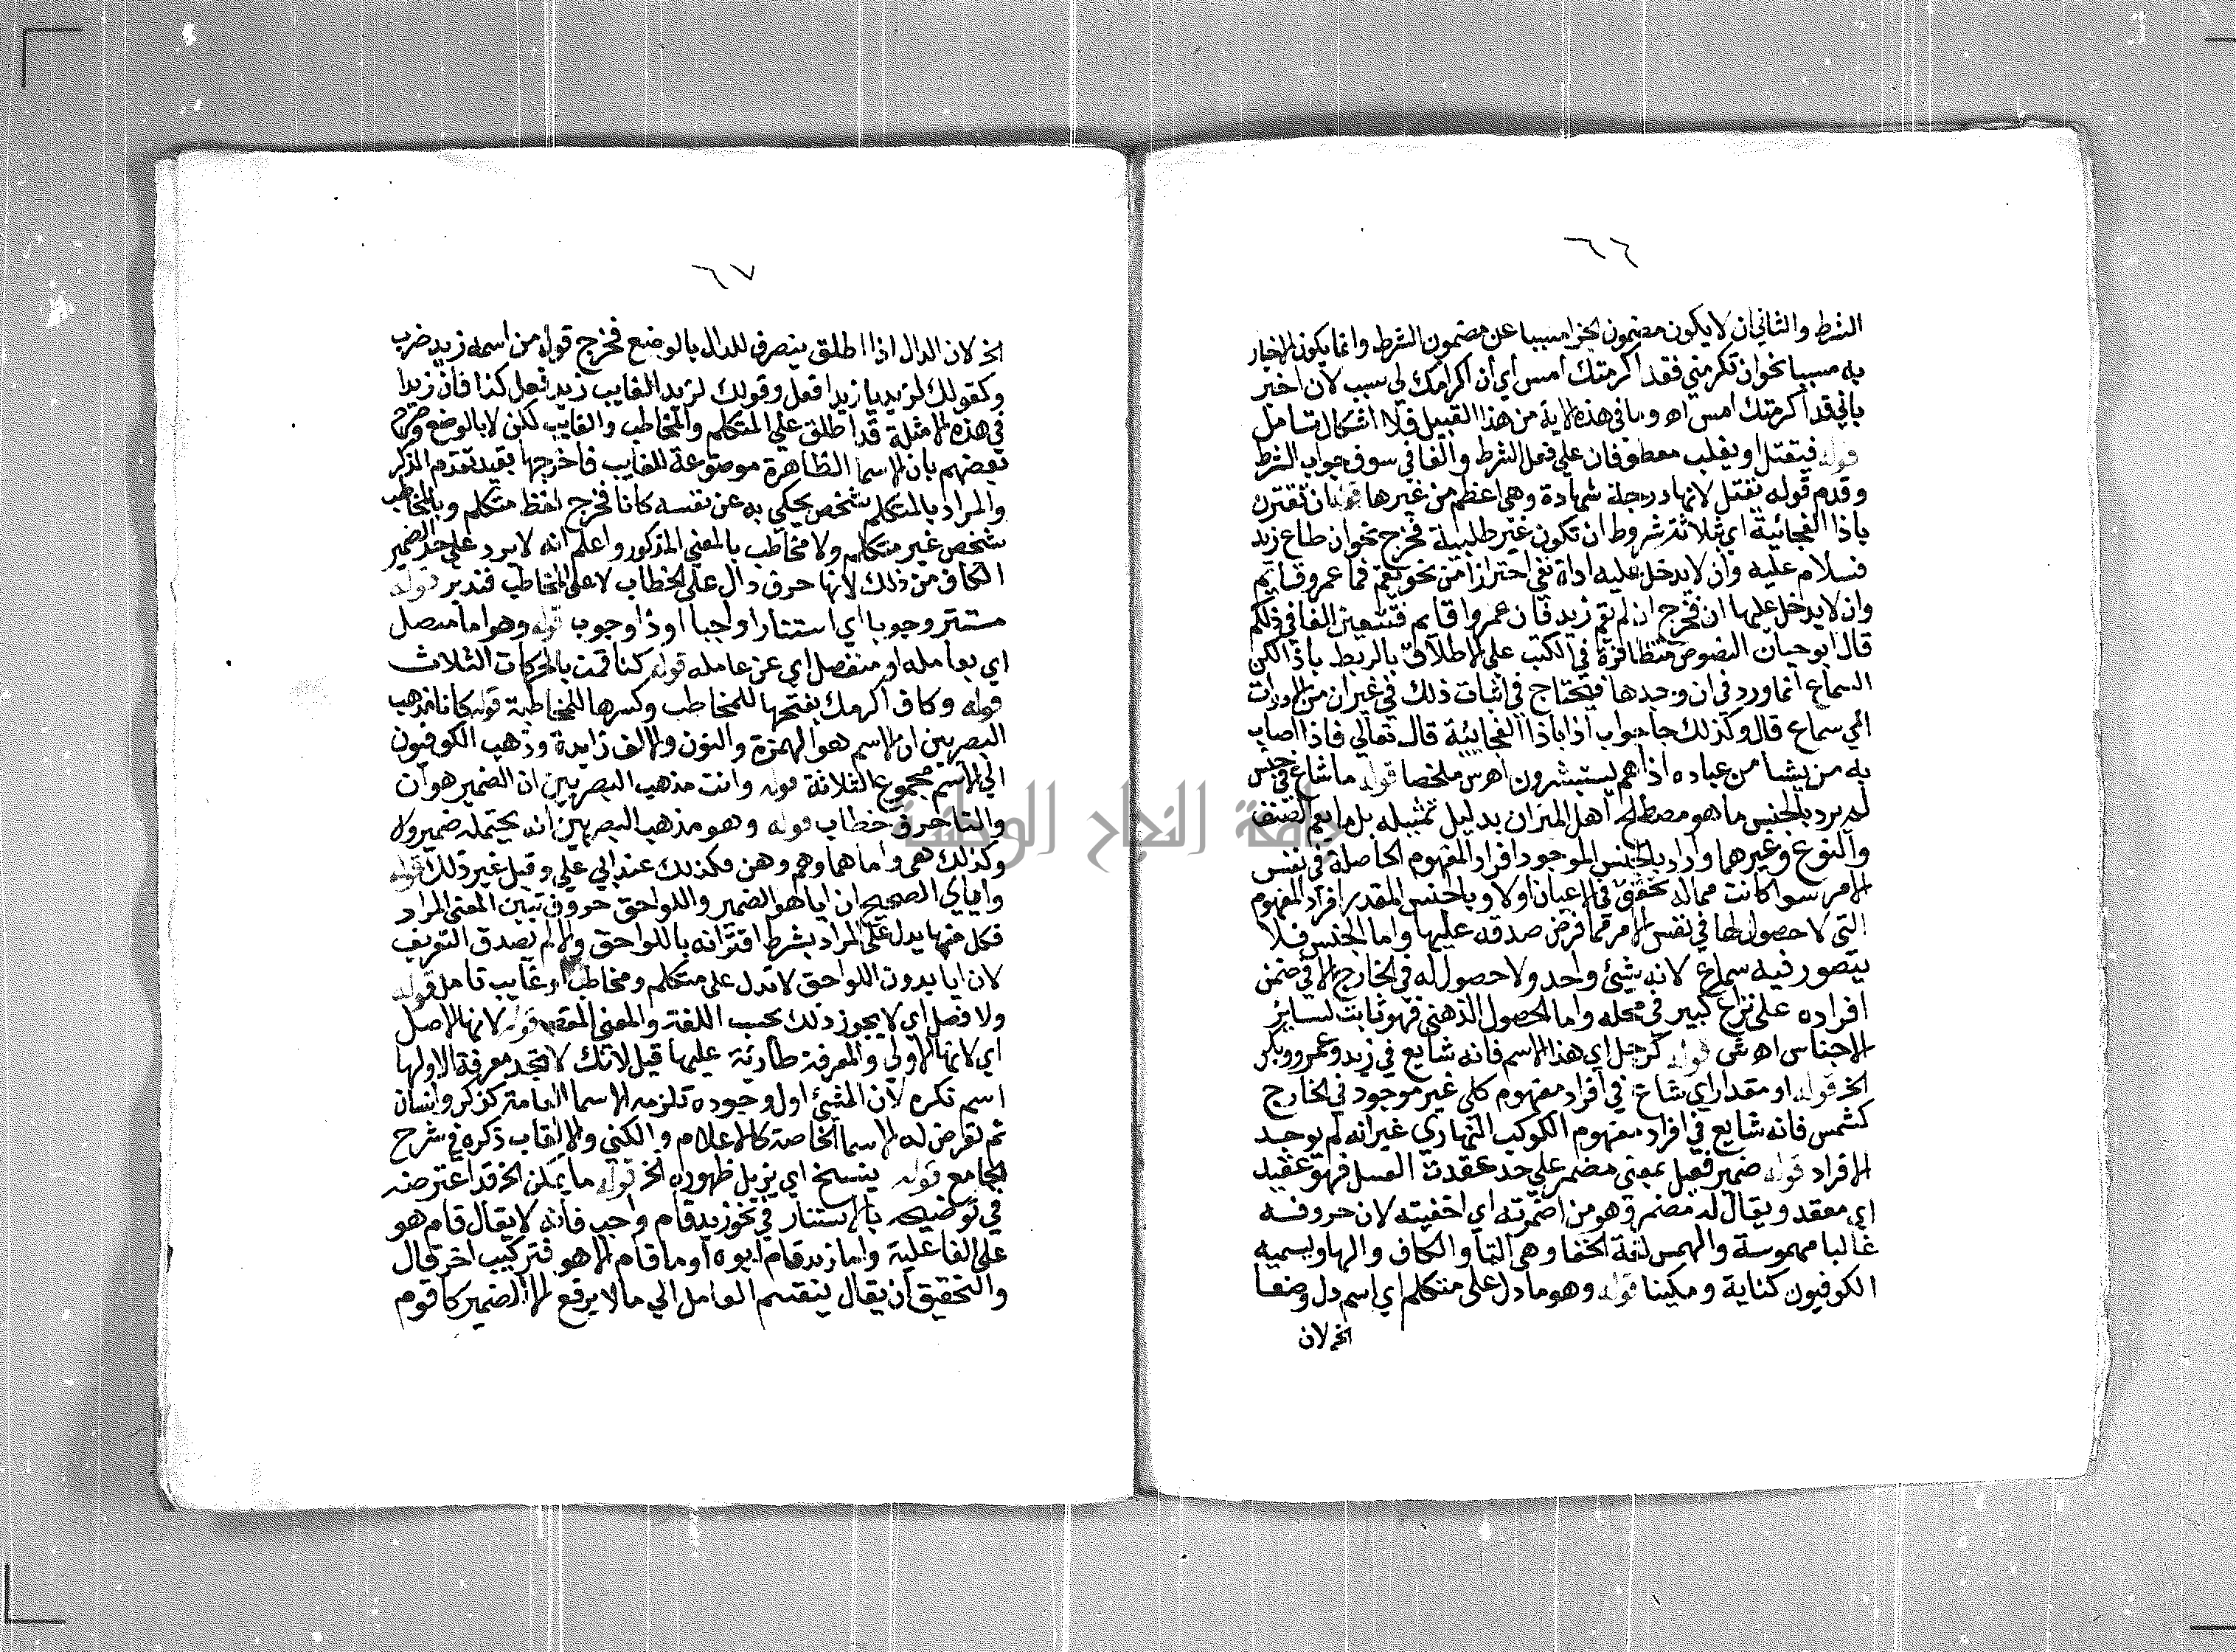 ٦٦
الشرط والثاني ان لا يكون مضمون الجزا مسببا عن مضمون الشرط وانما يكون الاخبار
به مسببا نحو ان تكرمني فقد اكرمتك امس اي ان اكرامك لي سبب لان اخبر
باني قد اكرمتك امس اه وما في هذه الاية من هذا القبيل فلا اشكال تامل
قوله فيقتل او يغلب معطوفان على فعل الشرط والفا في سوف جواب الشرط
وقدم قوله يقتل لانها درجة شهادة وهي اعظم من غيرها قوله ان تقترن
باذا الفجائية اي بثلاثة شروط ان تكون غير طلبية فخرج نحو ان طاع زيد
فسلام عليه وان لا يدخل عليه اداة نفي احترازا من نحو يقم فما عمرو قايم
وان لا يدخل عليها ان فخرج ان لم تقم زيد فان عمروا قايم فتتعين الفا في ذلكم
قال ابو حيان النصوص متظافرة في الكتب على الاطلاق بالربط باذا لكن
السماع انما ورد في ان وحدها فيحتاج في اثبات ذلك في غير ان من الادوات
الي سماع قال وكذلك جا جواب اذا باذا الفجائية قال تعالي فاذا اصاب
به من يشا من عباده اذا هم يستبشرون اه س ملخصا قوله ما شاع في جنس
لم يرد بالجنس ما هو مصطلح اهل الميزان بدليل تمثيله بل ما يعم الصنف
والنوع وغيرهما واراد بالجنس الموجود افراد المفهوم الحاصلة في نفس
الامر سوا كانت مما له تحقق في الاعيان اولا وبالجنس المقدر افراد المفهوم
التي لا حصول لها في نفس الامر مما فرض صدقه عليها واما الجنس فلا
يتصور فيه سماع لانه شيئ واحد ولا حصول له في الخارج الا في ضمن
افراده على نزاع كبير في محله واما الحصول الذهني فهو ثابت لساير
الاجناس اه ش قوله كرجل اي هذا الاسم فانه شايع في زيد وعمرو وبكر
الخ قوله او مقدار اي شاع في افراد مفهوم كلي غير موجود في الخارج
كشمس فانه شايع في افراد مفهوم الكوكب النهاري غير انه لم يوجد
الافراد قوله ضمير فعيل بمعنى مضمر على حد عقدت العسل فهو عقيد
اي معقد ويقال له مضمر وهو من اضمرته اي اخفيته لان حروفه
غالبا مهموسة والهمس لغة الخفا وهي التا والكاف والها ويسميه
الكوفيون كناية ومكينا قوله وهو ما دل على متكلم اي اسم دل وضعا
الخ لان
٦٧
الخ لان الدال اذا اطلق ينصرف للدال بالوضع فخرج قول من اسمه زيد ضرب
وكقولك لزيد يا زيد افعل وقولك لزيد الغايب زيد فعل كذا فان زيدا
في هذه الامثلة قد اطلق على المتكلم والمخاطب والغايب لكن لا بالوضع وصرح
بعضهم بان الاسما الظاهرة موضوعة للغايب فاخرجها بقيد تقدم الذكر
والمراد بالمتكلم شخص يحكي به عن نفسه كانا فخرج لفظ متكلم وبالمخاطب
شخص غير متكلم ولا مخاطب بالمعنى المذكور واعلم انه لا يرد على حد الضمير
الكاف من ذلك لانها حرف دال على الخطاب لا على المخاطب فتدبر قوله
مستتر وجوبا اي استتارا واجبا او ذا وجوب قوله وهو اما متصل
اي بعامله او منفصل اي عن عامله قوله كتا قمت بالحركات الثلاث
قوله وكاف اكرمك بفتحها للمخاطب وكسرها للمخاطبة قوله كانا مذهب
البصريين ان الاسم هو الهمزة والنون والالف زايدة وذهب الكوفيون
الي الاسم مجموع الثلاثة قوله وانت مذهب البصريين ان الضمير هو ان
والتا حرف خطاب قوله وهو مذهب البصريين انه بجملته ضمير ولا
وكذلك هي واما هما وهم وهن فكذلك عند ابي علي وقيل غير ذلك قوله
واياي الصحيح ان ايا هو الضمير واللواحق حروف تبين المعنى المراد
فكل منها يدل على المراد بشرط اقترانه باللواحق والا لم يصدق التعريف
لان ايا بدون اللواحق لا تدل على متكلم ومخاطب او غايب تامل قوله
ولا فصل اي لا يجوز ذلك بحسب اللغة والمعنى قوله لانها الاصل
اي لانها الاولي والمعرفة طارئة عليها قيل لانك لا تجد معرفة الا ولها
اسم نكرة لان المشيئ اول وجوده تلزمه الاسما العامة كذكر وانسان
ثم تعرض له الاسما الخاصة كالاعلام والكني والالقاب ذكره في شرح
الجامع قوله ينسخ اي يزيل ظهوره الخ قوله ما يمكن الخ قد اعترضه
في توضيحه بالاستتار في نحو زيد قام واجب فانه لا يقال قام هو
على الفاعلية واما زيد قام ابوه او ما قام الا هو فتركيب اخر قال
والتحقيق ان يقال ينقسم العامل الي ما لا يرفع الا الضمير كاقوم
جامعة النجاح الوطنية